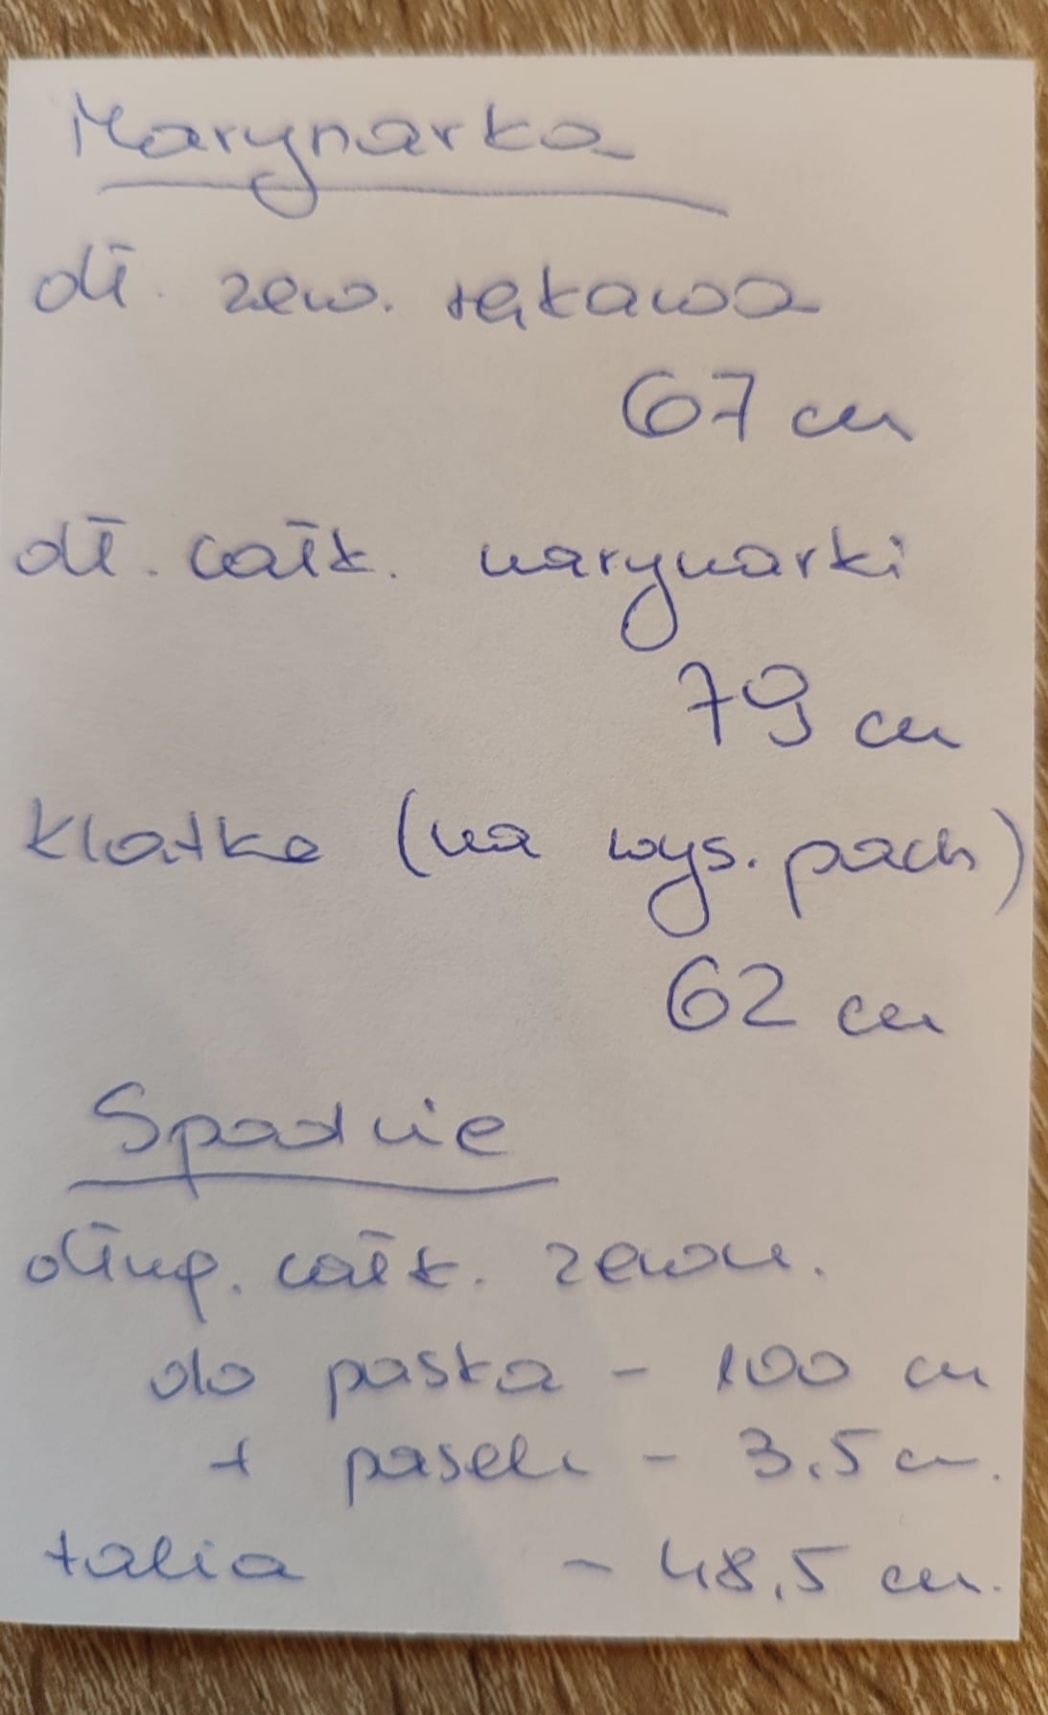 Marynarka
dł. zew. rękawa
67 cm
dł. całk. marynarki
79 cm
klatka (na wys. pach)
62 cm
Spodnie
dług. całk. zewn.
do paska - 100 cm
+ pasek - 3,5 cm.
talia - 48,5 cm.